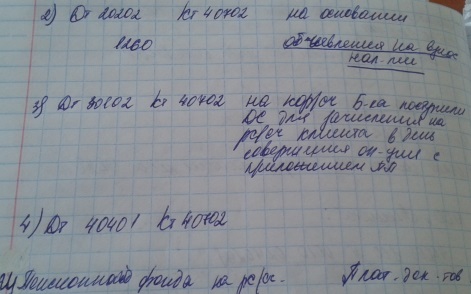 2) Дт 20202 Кт 40702 на основании
1260 объявления на взнос
нал-ми
3) Дт 30202 Кт 40702 на кор/сч Б-ка поступили
ДС для зачисления на
рс/сч клиента в день
совершения оп-ции с
приложением
4) Дт 40401 Кт 40702
Пенсионного фонда на рс/с. Плат-док-тов